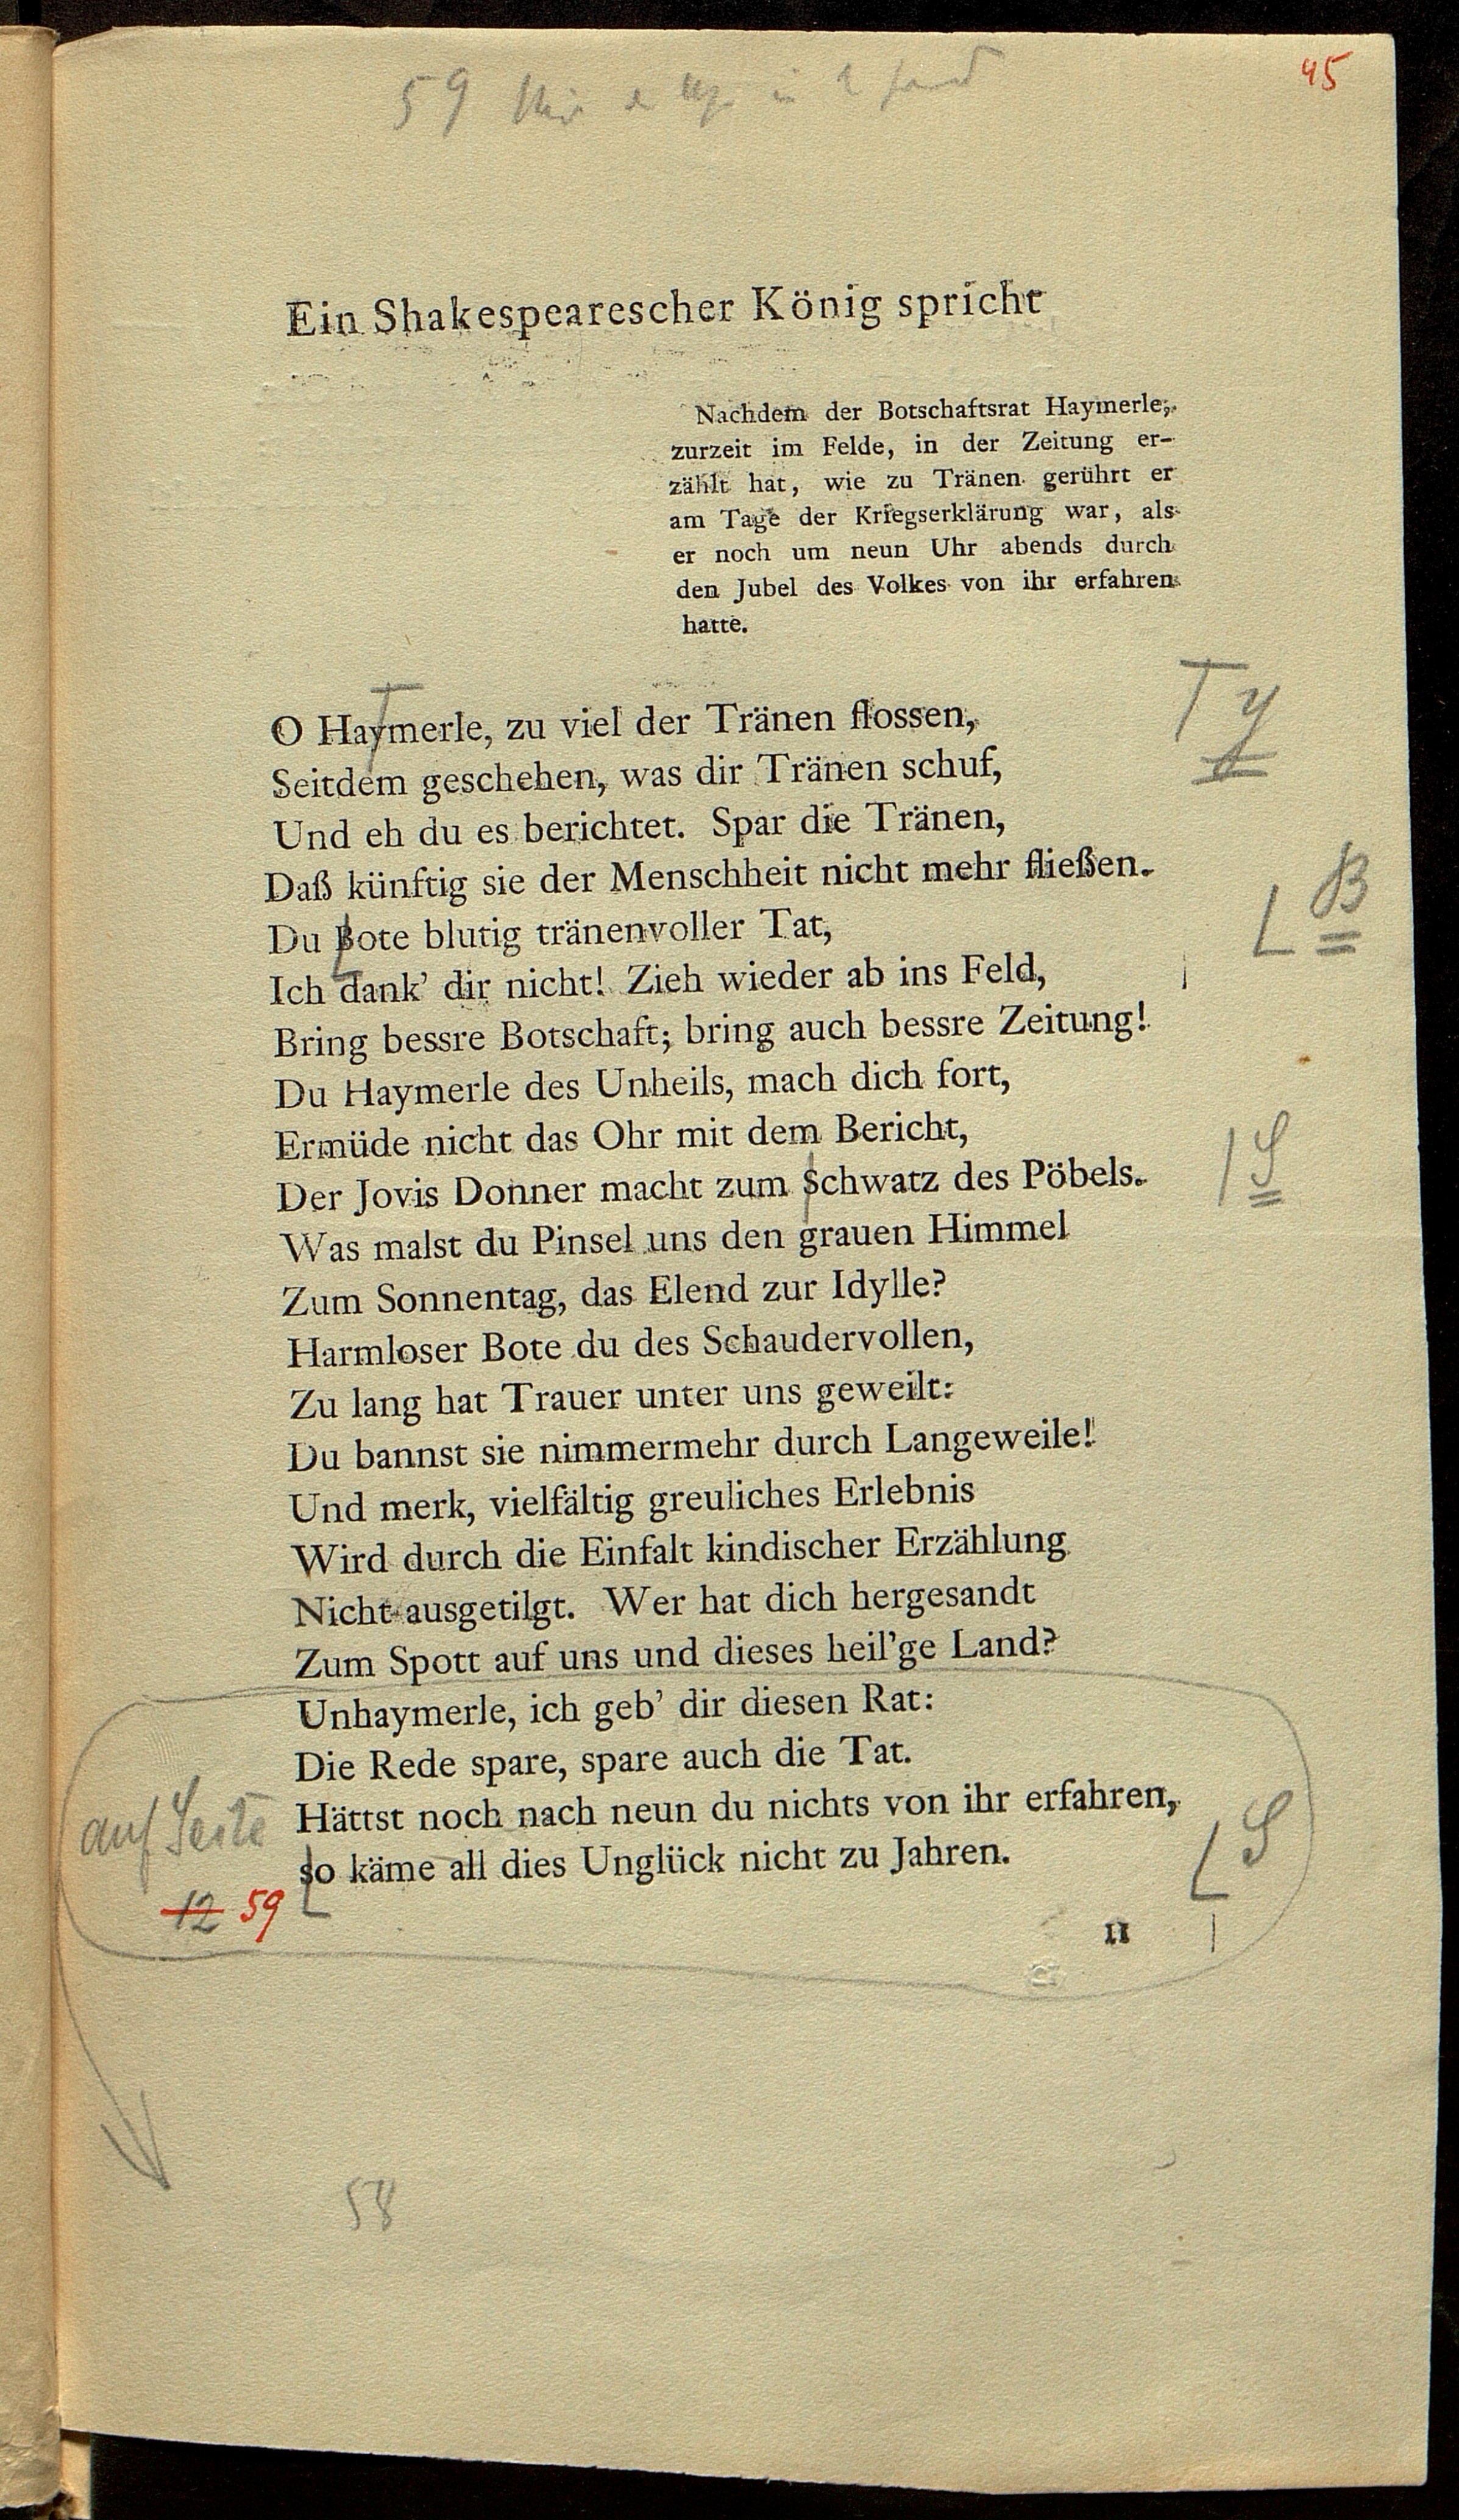 59
45
Ein Shakespearescher König spricht
Nachdem der Botschaftsrat Haymerle,
zurzeit im Felde, in der Zeitung er-
zählt hat, wie zu Tränen gerührt er
am Tage der Kriegserklärung war, als
er noch um neun Uhr abends durch
den Jubel des Volkes von ihr erfahren
hatte.
O Haymerle, zu viel der Tränen flossen, y
Seitdem geschehen, was dir Tränen schuf,
Und eh du es berichtet. Spar die Tränen,
Daß künftig sie der Menschheit nicht mehr fließen.
Du Bote blutig tränenvoller Tat, B
Ich dank' dir nicht! Zieh wieder ab ins Feld,
Bring bessre Botschaft; bring auch bessre Zeitung!
Du Haymerle des Unheils, mach dich fort,
Ermüde nicht das Ohr mit dem Bericht,
Der Jovis Donner macht zum Schwatz des Pöbels. S
Was malst du Pinsel uns den grauen Himmel
Zum Sonnentag, das Elend zur Idylle?
Harmloser Bote du des Schaudervollen,
Zu lang hat Trauer unter uns geweilt:
Du bannst sie nimmermehr durch Langeweile!
Und merk, vielfältig greuliches Erlebnis
Wird durch die Einfalt kindischer Erzählung
Nicht ausgetilgt. Wer hat dich hergesandt
Zum Spott auf uns und dieses heil'ge Land?
Unhaymerle, ich geb' dir diesen Rat:
Die Rede spare, spare auch die Tat.
Hättst noch nach neun du nichts von ihr erfahren,
so käme all dies Unglück nicht zu Jahren. S
auf Seite
12 59
11
58